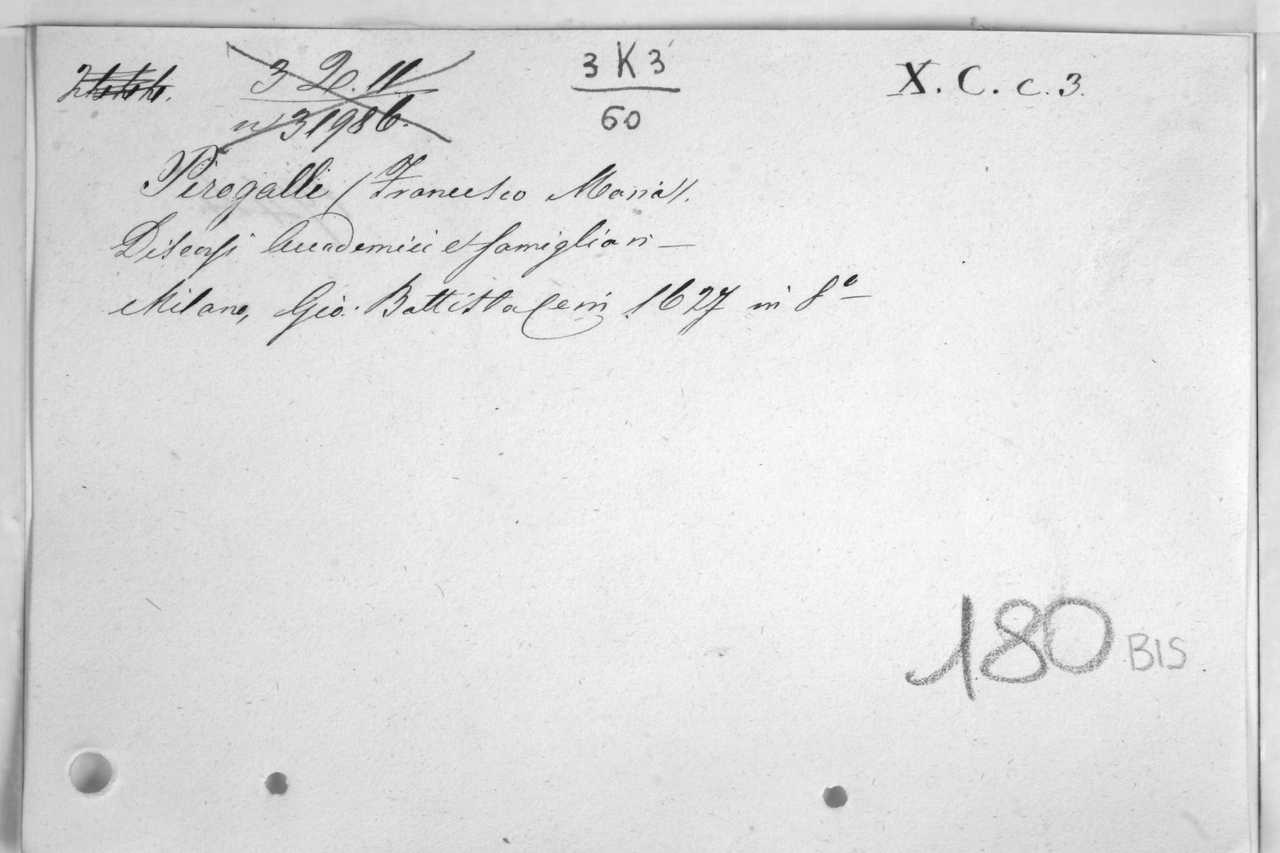 3 20. 11 3 K 3 X. C. c. 3.
n 31986. 60
Pirogalli (Francesco Maria).
Discorsi Accademici et famigliari —
Milano, Gio. Battista Cerri 1627 in 8º —
180 BIS